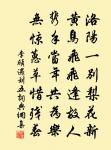 洛陽一別梨花新
黃鳥飛飛逢故人
攜手當年共為樂
無驚蕙草惜殘春
李頎遇劉五詞典網